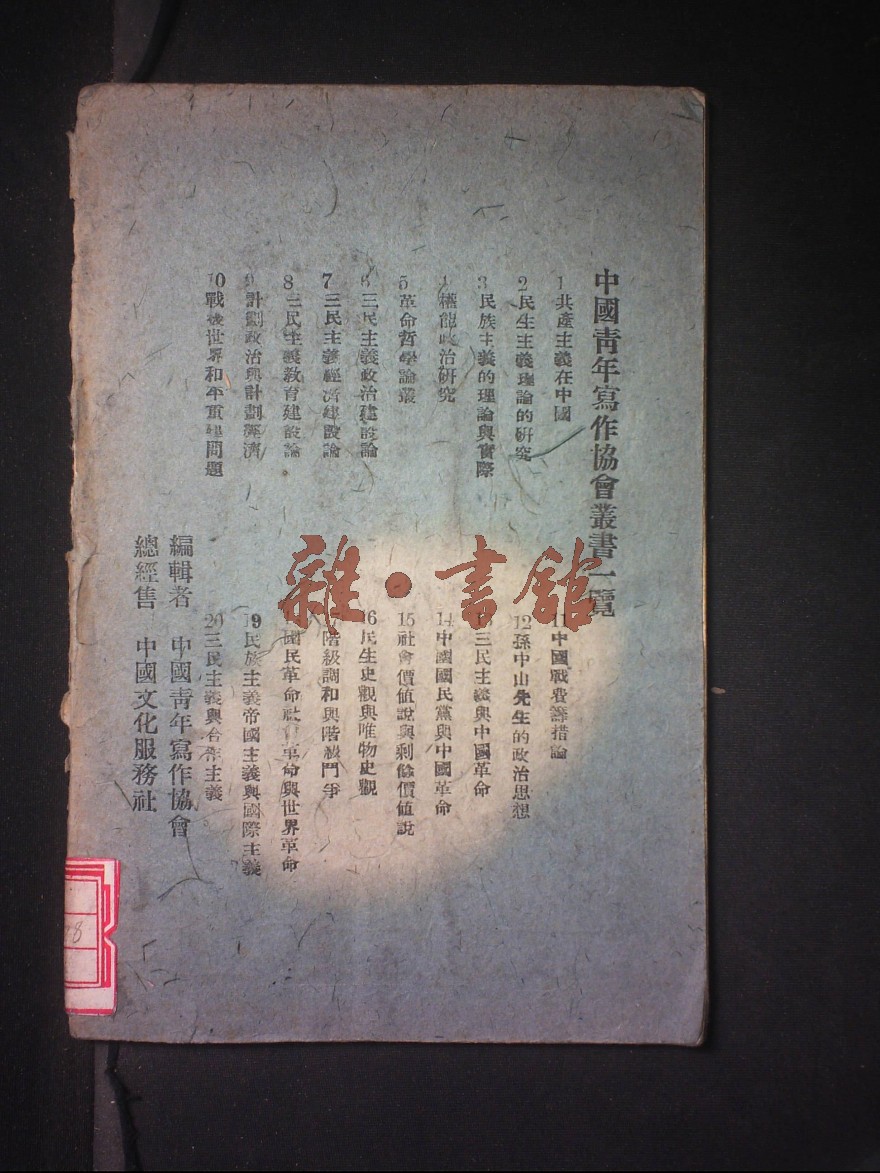 中國青年寫作協會叢書一覽
1 共產主義在中國
2 民生主義理論的研究
3 民族主義的理論與實際
4 權能政治研究
5 革命哲學論叢
6 三民主義政治建設論
7 三民主義經濟建設論
8 三民主義教育建設論
9 計劃政治與計劃經濟
10 戰後世界和平重建問題
11 中國戰費籌措論
12 孫中山先生的政治思想
13 三民主義與中國革命
14 中國國民黨與中國革命
15 社會價值說與剩餘價值說
16 民生史觀與唯物史觀
17 階級調和與階級鬥爭
國民革命社會革命與世界革命
19 民族主義帝國主義與國際主義
20 三民主義與合作主義
編輯者 中國青年寫作協會
總經售 中國文化服務社
雜·書館